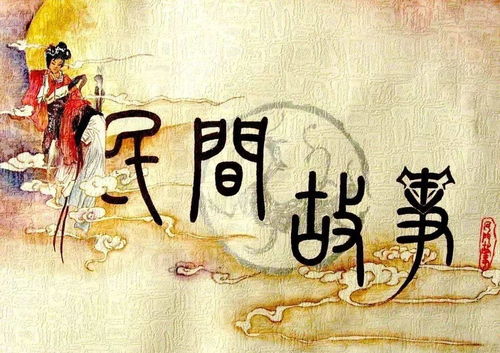 民間故事